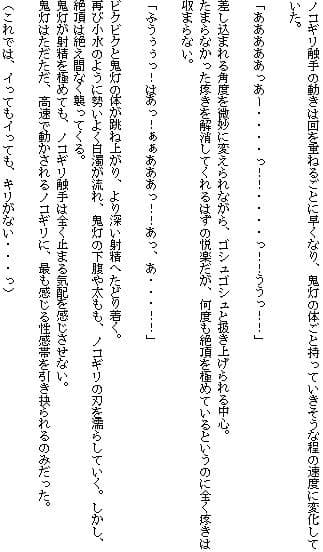 ノコギリ触手の動きは回を重ねるごとに早くなり、鬼灯の体ごと持っていきそうな程の速度に変化して
いた。
「ああああああっあー・・・・っ！！・・・・っ！！ううっ！！」
差し込まれる角度を微妙に変えられながら、ゴシュゴシュと扱き上げられる中心。
たまらなかった疼きを解消してくれるはずの悦楽だが、何度も絶頂を極めているというのに全く疼きは
収まらない。
「ふうぅぅっ！はあっ！ぁぁあああっ！！あっ、あ・・・！！」
ビクビクと鬼灯の体が跳ね上がり、より深い射精へたどり着く。
再び小水のように勢いよく白濁が流れ、鬼灯の下腹や太もも、ノコギリの刃を濡らしていく。しかし、
絶頂は絶え間なく襲ってくる。
鬼灯が射精を極めても、ノコギリ触手は全く止まる気配を感じさせない。
鬼灯はただただ、高速で動かされるノコギリに、最も感じる性感帯を引き抉られるのみだった。
（これでは、イってもイっても、キリがない・・・っ）